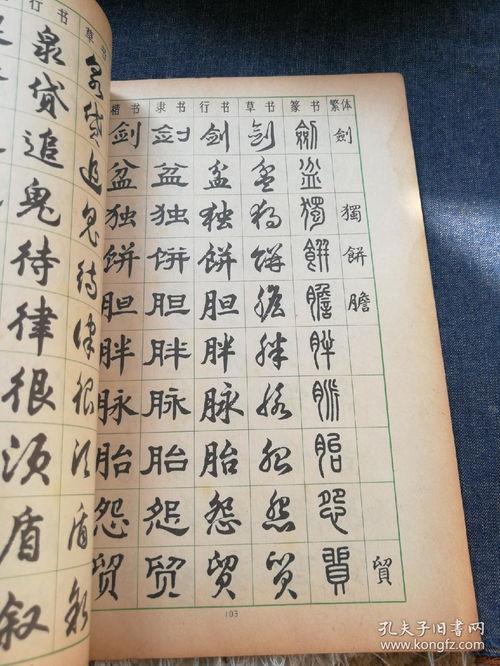 行书 草书
泉
贷 贷
追 追
鬼 鬼
待 待
律 律
很 很
须 须
盾 盾
叙 叙
楷书 隶书 行书 草书 篆书 繁体
剑 剑 剑 剑 劍 劍
盆 盆 盆 盆 盆
独 独 独 独 獨 獨
饼 饼 饼 饼 餅 餅
胆 胆 胆 膽 膽 膽
胖 胖 胖 胖 胖
脉 脉 脉 脉 脈
胎 胎 胎 胎 胎
怨 怨 怨 怨 怨
贸 贸 贸 贸 貿 貿
103
孔夫子旧书网
www.kongfz.com